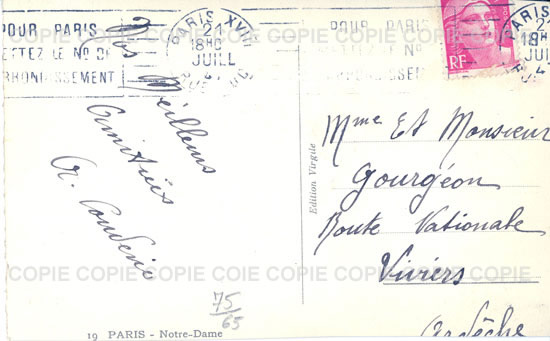 POUR PARIS
METTEZ LE N° DE
ARRONDISSEMENT
PARIS XVIII
21
18H
JUILL
POUR PARIS
RF
PARIS
2
18H
JUI
Nos
Meilleurs
Amitiés
Edition Virgile
Mme Et Monsieur
Gourgéon
Route Nationale
Viviers
Ardêche
75/65
19 PARIS - Notre-Dame
COPIE COPIE COPIE COPIE COPIE COPIE
COPIE COPIE COPIE COIE COPIE COPIE COPIE COPIE